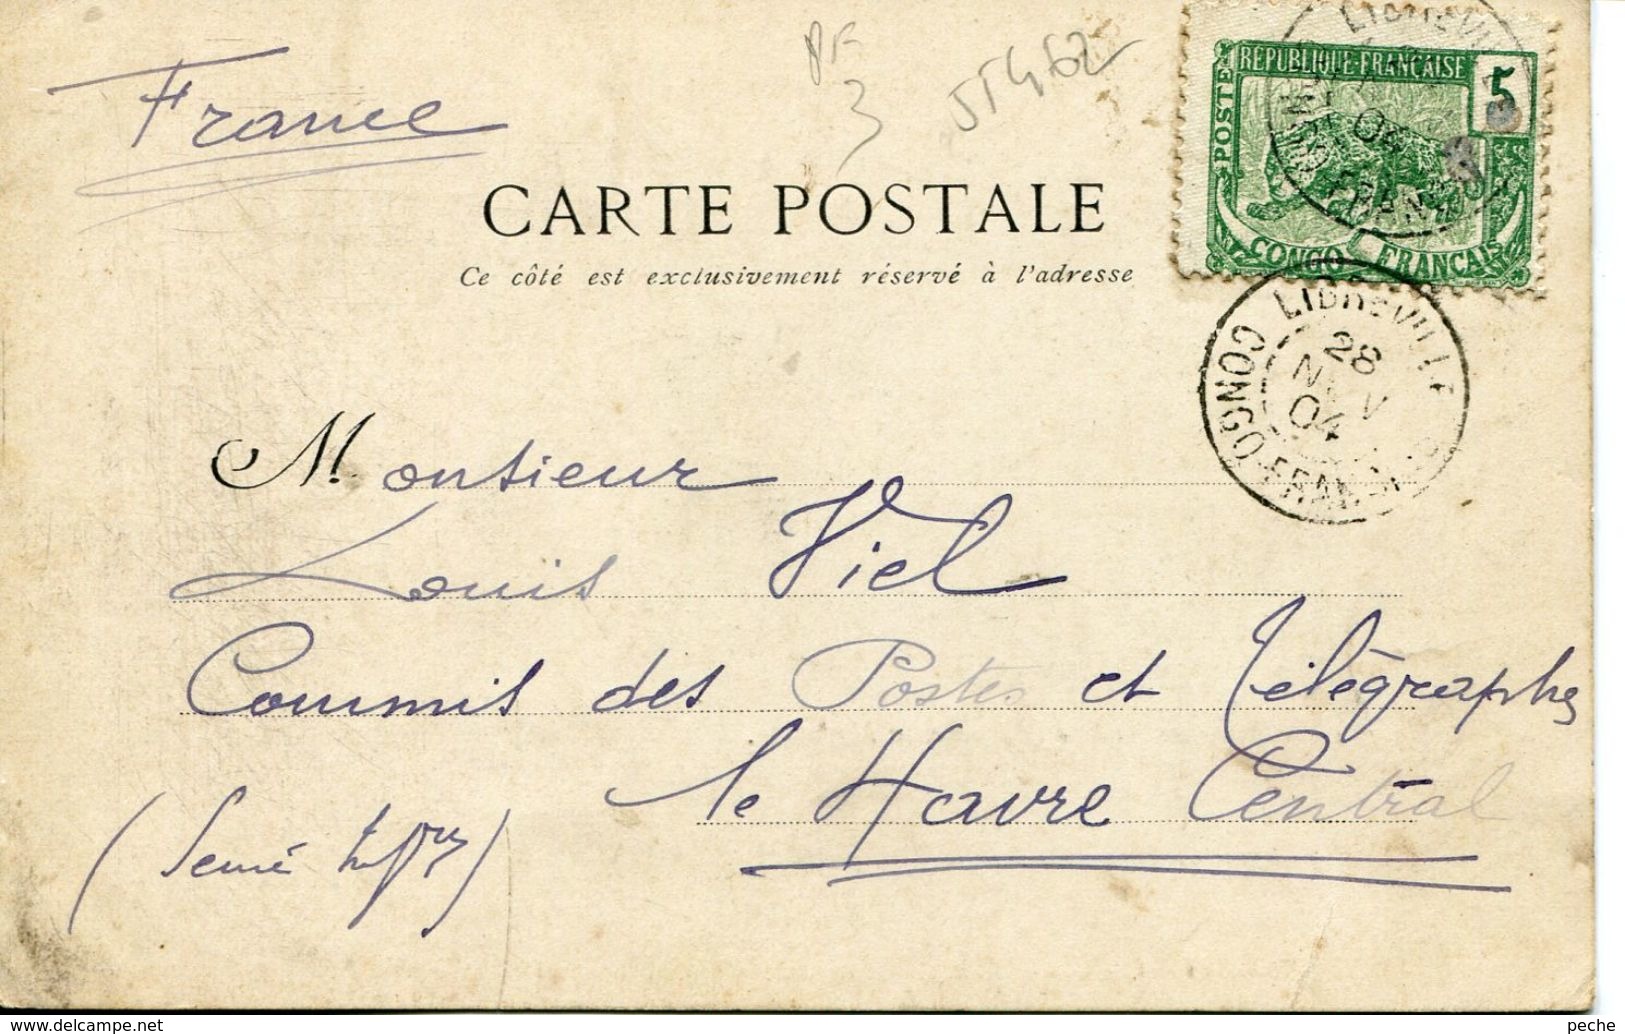 France
PF
3
CARTE POSTALE
Ce côté est exclusivement réservé à l'adresse
RÉPUBLIQUE-FRANÇAISE
POSTES
5
CONGO FRANÇAIS
LIBREVILLE
28
NOV
04
CONGO FRANÇAIS
Monsieur
Louis Viel
Commis des Postes et Télégraphes
le Havre Central
(Seine Infre)
www.delcampe.net
peche